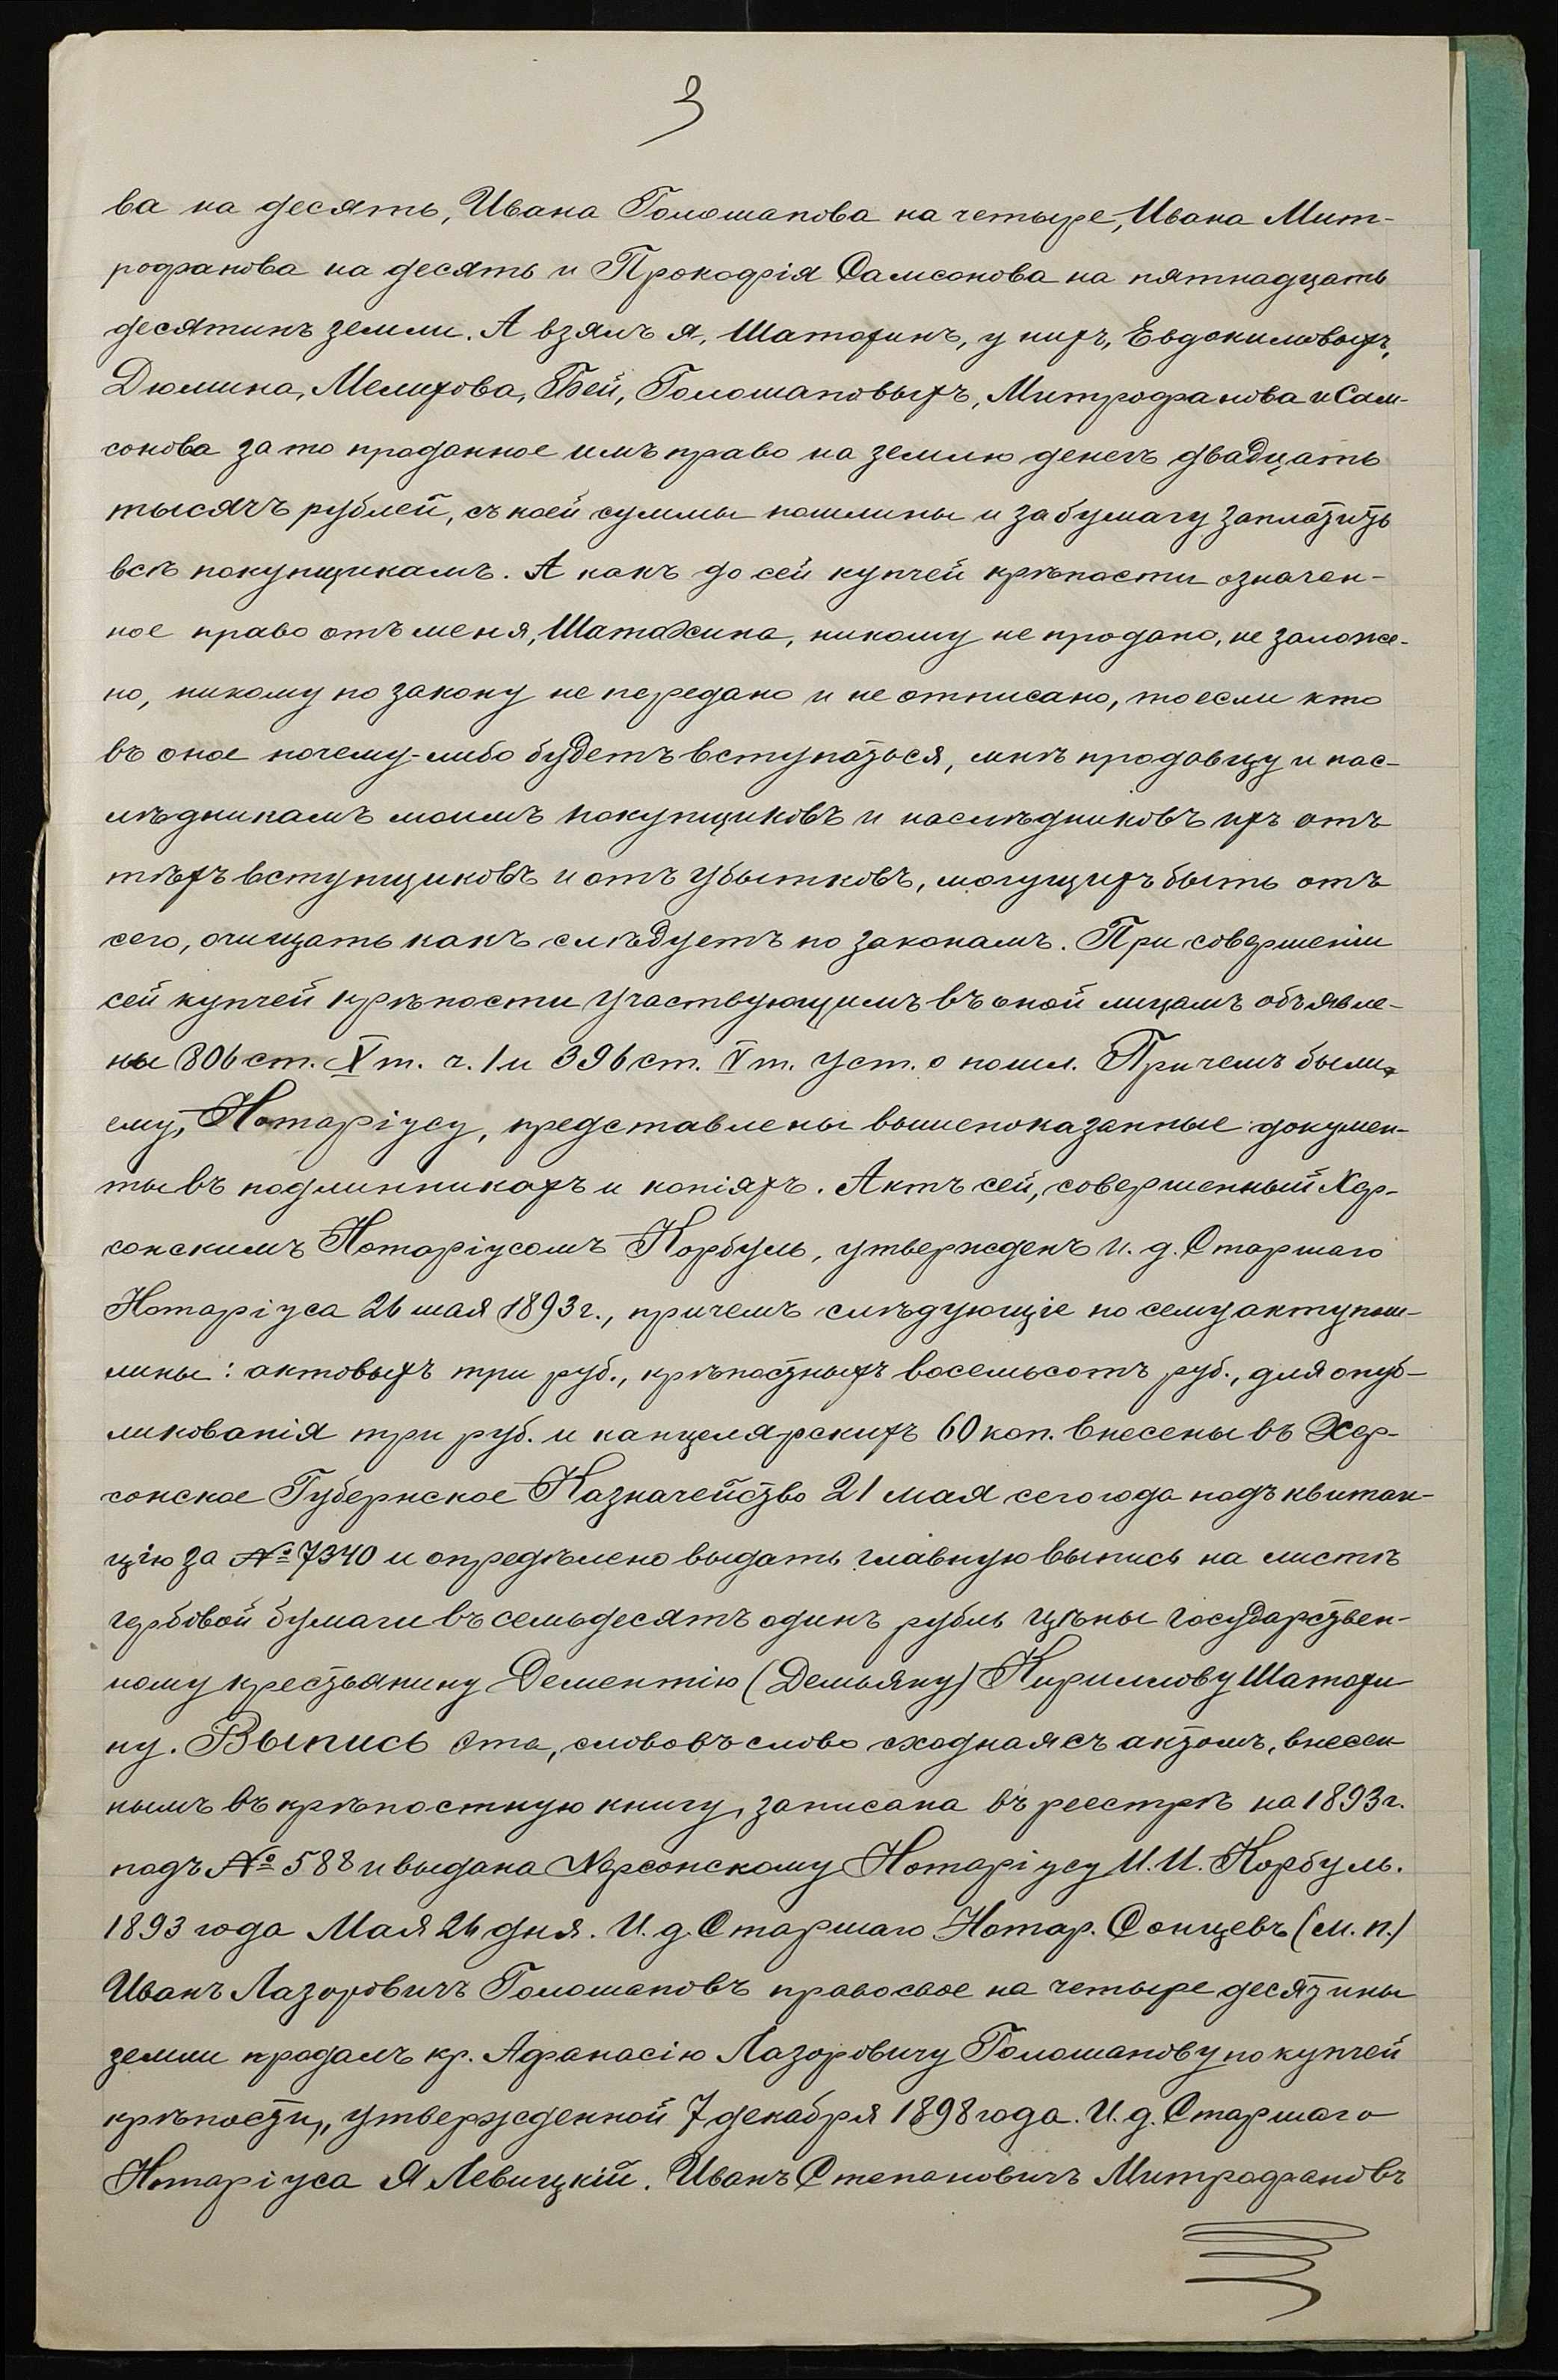 3
ва на десять, Ивана Голошапова на четыре, Ивана Мит-
рофанова на десять и Прокофія Самсонова на пятнадцать
десятинъ земли. А взялъ я, Шатохинъ, у нихъ, Евдокимовыхъ,
Дюмина, Мелихова, Бей, Голошаповыхъ, Митрофанова и Сам-
сонова за то проданное имъ право на землю денегъ двадцать
тысячъ рублей, съ коей суммы пошлины и за бумагу заплатить
всѣ покупщикамъ. А какъ до сей купчей крѣпости означен-
ное право отъ меня, Шатохина, никому не продано, не заложе-
но, никому по закону не передано и не отписано, то если кто
въ оное почему-либо будетъ вступаться, мнѣ продавцу и нас-
лѣдникамъ моимъ покупщиковъ и наслѣдниковъ ихъ отъ
тѣхъ вступщиковъ и отъ убытковъ, могущихъ быть отъ
сего, очищать какъ слѣдуетъ по законамъ. При совершеніи
сей купчей крѣпости участвующимъ въ оной лицамъ объявле-
ны 806 ст. X т. ч. 1 и 396 ст. V т. Уст. о пошл. Причемъ были,
ему, Нотаріусу, представлены вышепоказанные докумен-
ты въ подлинникахъ и копіяхъ. Актъ сей, совершенный Хер-
сонскимъ Нотаріусомъ Корбуль, утвержденъ И. д. Старшаго
Нотаріуса 26 мая 1893 г., причемъ слѣдующіе по сему акту пош-
лины: актовыхъ три руб., крѣпостныхъ восемьсотъ руб., для опуб-
ликованія три руб. и канцелярскихъ 60 коп. внесены въ Хер-
сонское Губернское Казначейство 21 мая сего года подъ квитан-
цію за № 7340 и опредѣлено выдать главную выпись на листѣ
гербовой бумаги въ семьдесятъ одинъ рубль цѣны государствен-
ному крестьянину Дементію (Демьяну) Кириллову Шатохи-
ну. Выпись эта, слово въ слово сходная съ актомъ, внесен
нымъ въ крѣпостную книгу, записана въ реестрѣ на 1893 г.
подъ № 588 и выдана Херсонскому Нотаріусу И. И. Корбуль.
1893 года Мая 26 дня. И. д. Старшаго Нотар. Сонцевъ (м. п.)
Иванъ Лазоровичъ Голошаповъ право свое на четыре десятины
земли продалъ кр. Афанасію Лазоровичу Голошапову по купчей
крѣпости, утвержденной 7 декабря 1898 года. И. д. Старшаго
Нотаріуса Я Левицкій. Иванъ Степановичъ Митрофановъ